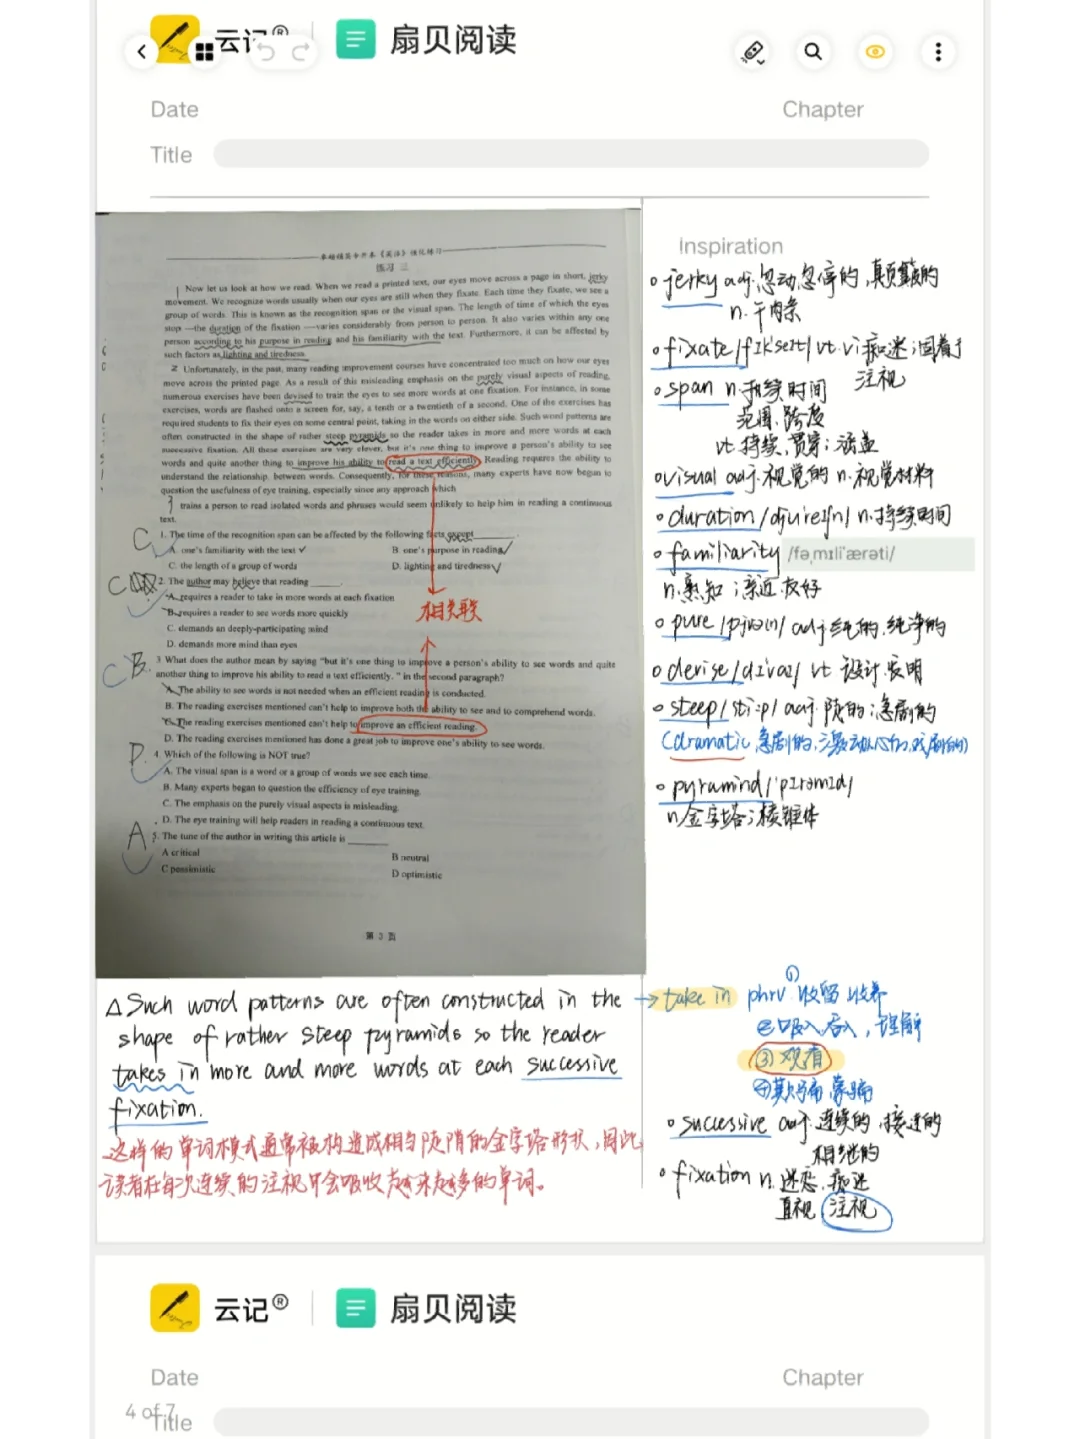 云记® 扇贝阅读
Date Chapter
Title
卓越精英专升本《英语》强化练习
练习 三
1 Now let us look at how we read. When we read a printed text, our eyes move across a page in short, jerky
movement. We recognize words usually when our eyes are still when they fixate. Each time they fixate, we see a
group of words. This is known as the recognition span or the visual span. The length of time of which the eyes
stop —the duration of the fixation —varies considerably from person to person. It also varies within any one
person according to his purpose in reading and his familiarity with the text. Furthermore, it can be affected by
such factors as lighting and tiredness.
2 Unfortunately, in the past, many reading improvement courses have concentrated too much on how our eyes
move across the printed page. As a result of this misleading emphasis on the purely visual aspects of reading,
numerous exercises have been devised to train the eyes to see more words at one fixation. For instance, in some
exercises, words are flashed onto a screen for, say, a tenth or a twentieth of a second. One of the exercises has
required students to fix their eyes on some central point, taking in the words on either side. Such word patterns are
often constructed in the shape of rather steep pyramids so the reader takes in more and more words at each
successive fixation. All these exercises are very clever, but it's one thing to improve a person's ability to see
words and quite another thing to improve his ability to read a text efficiently. Reading requires the ability to
understand the relationship between words. Consequently, for these reasons, many experts have now begun to
question the usefulness of eye training, especially since any approach which
3 trains a person to read isolated words and phrases would seem unlikely to help him in reading a continuous
text.
C 1. The time of the recognition span can be affected by the following facts except
A. one's familiarity with the text ✓ B. one's purpose in reading ✓
C. the length of a group of words D. lighting and tiredness ✓
C 2. The author may believe that reading ____.
A. requires a reader to take in more words at each fixation
B. requires a reader to see words more quickly
C. demands an deeply-participating mind
D. demands more mind than eyes
相关联
C B. 3 What does the author mean by saying "but it's one thing to improve a person's ability to see words and quite
another thing to improve his ability to read a text efficiently. " in the second paragraph?
A. The ability to see words is not needed when an efficient reading is conducted.
B. The reading exercises mentioned can't help to improve both the ability to see and to comprehend words.
C. The reading exercises mentioned can't help to improve an efficient reading.
D. The reading exercises mentioned has done a great job to improve one's ability to see words.
D. 4. Which of the following is NOT true?
A. The visual span is a word or a group of words we see each time.
B. Many experts began to question the efficiency of eye training.
C. The emphasis on the purely visual aspects is misleading.
D. The eye training will help readers in reading a continuous text.
A 5. The tune of the author in writing this article is ____
A critical B neutral
C pessimistic D optimistic
第 3 页
Inspiration
jerky adj. 忽动忽停的,颠簸的
n. 干肉条
fixate /fɪkseɪt/ vt. vi 痴迷;固着于
注视
span n. 持续时间
范围. 跨度
vt. 持续,贯穿;涵盖
visual adj. 视觉的 n. 视觉材料
duration /djʊreɪʃn/ n. 持续时间
familiarity /fəˌmɪliˈærəti/
n. 熟知;亲近.友好
pure /pjʊə(r)/ adj 纯的.纯净的
devise /dɪvaɪz/ vt 设计.发明
steep /stiːp/ adj. 陡的;急剧的
(dramatic 急剧的,激动人心的,戏剧的)
pyramind /pɪrəmɪd/
n. 金字塔;棱锥体
△ Such word patterns are often constructed in the
shape of rather steep pyramids so the reader
takes in more and more words at each successive
fixation.
这样的单词模式通常被构造成相当陡峭的金字塔形状,因此
读者在每次连续的注视中会吸收越来越多的单词。
→ take in phrv. ① 收留 收养
② 吸入 吞入,理解
③ 观看
④ 欺骗 蒙骗
successive adj. 连续的.接连的
相继的
fixation n. 迷恋.痴迷
直视.注视
云记® 扇贝阅读
Date Chapter
4 of 7
Title